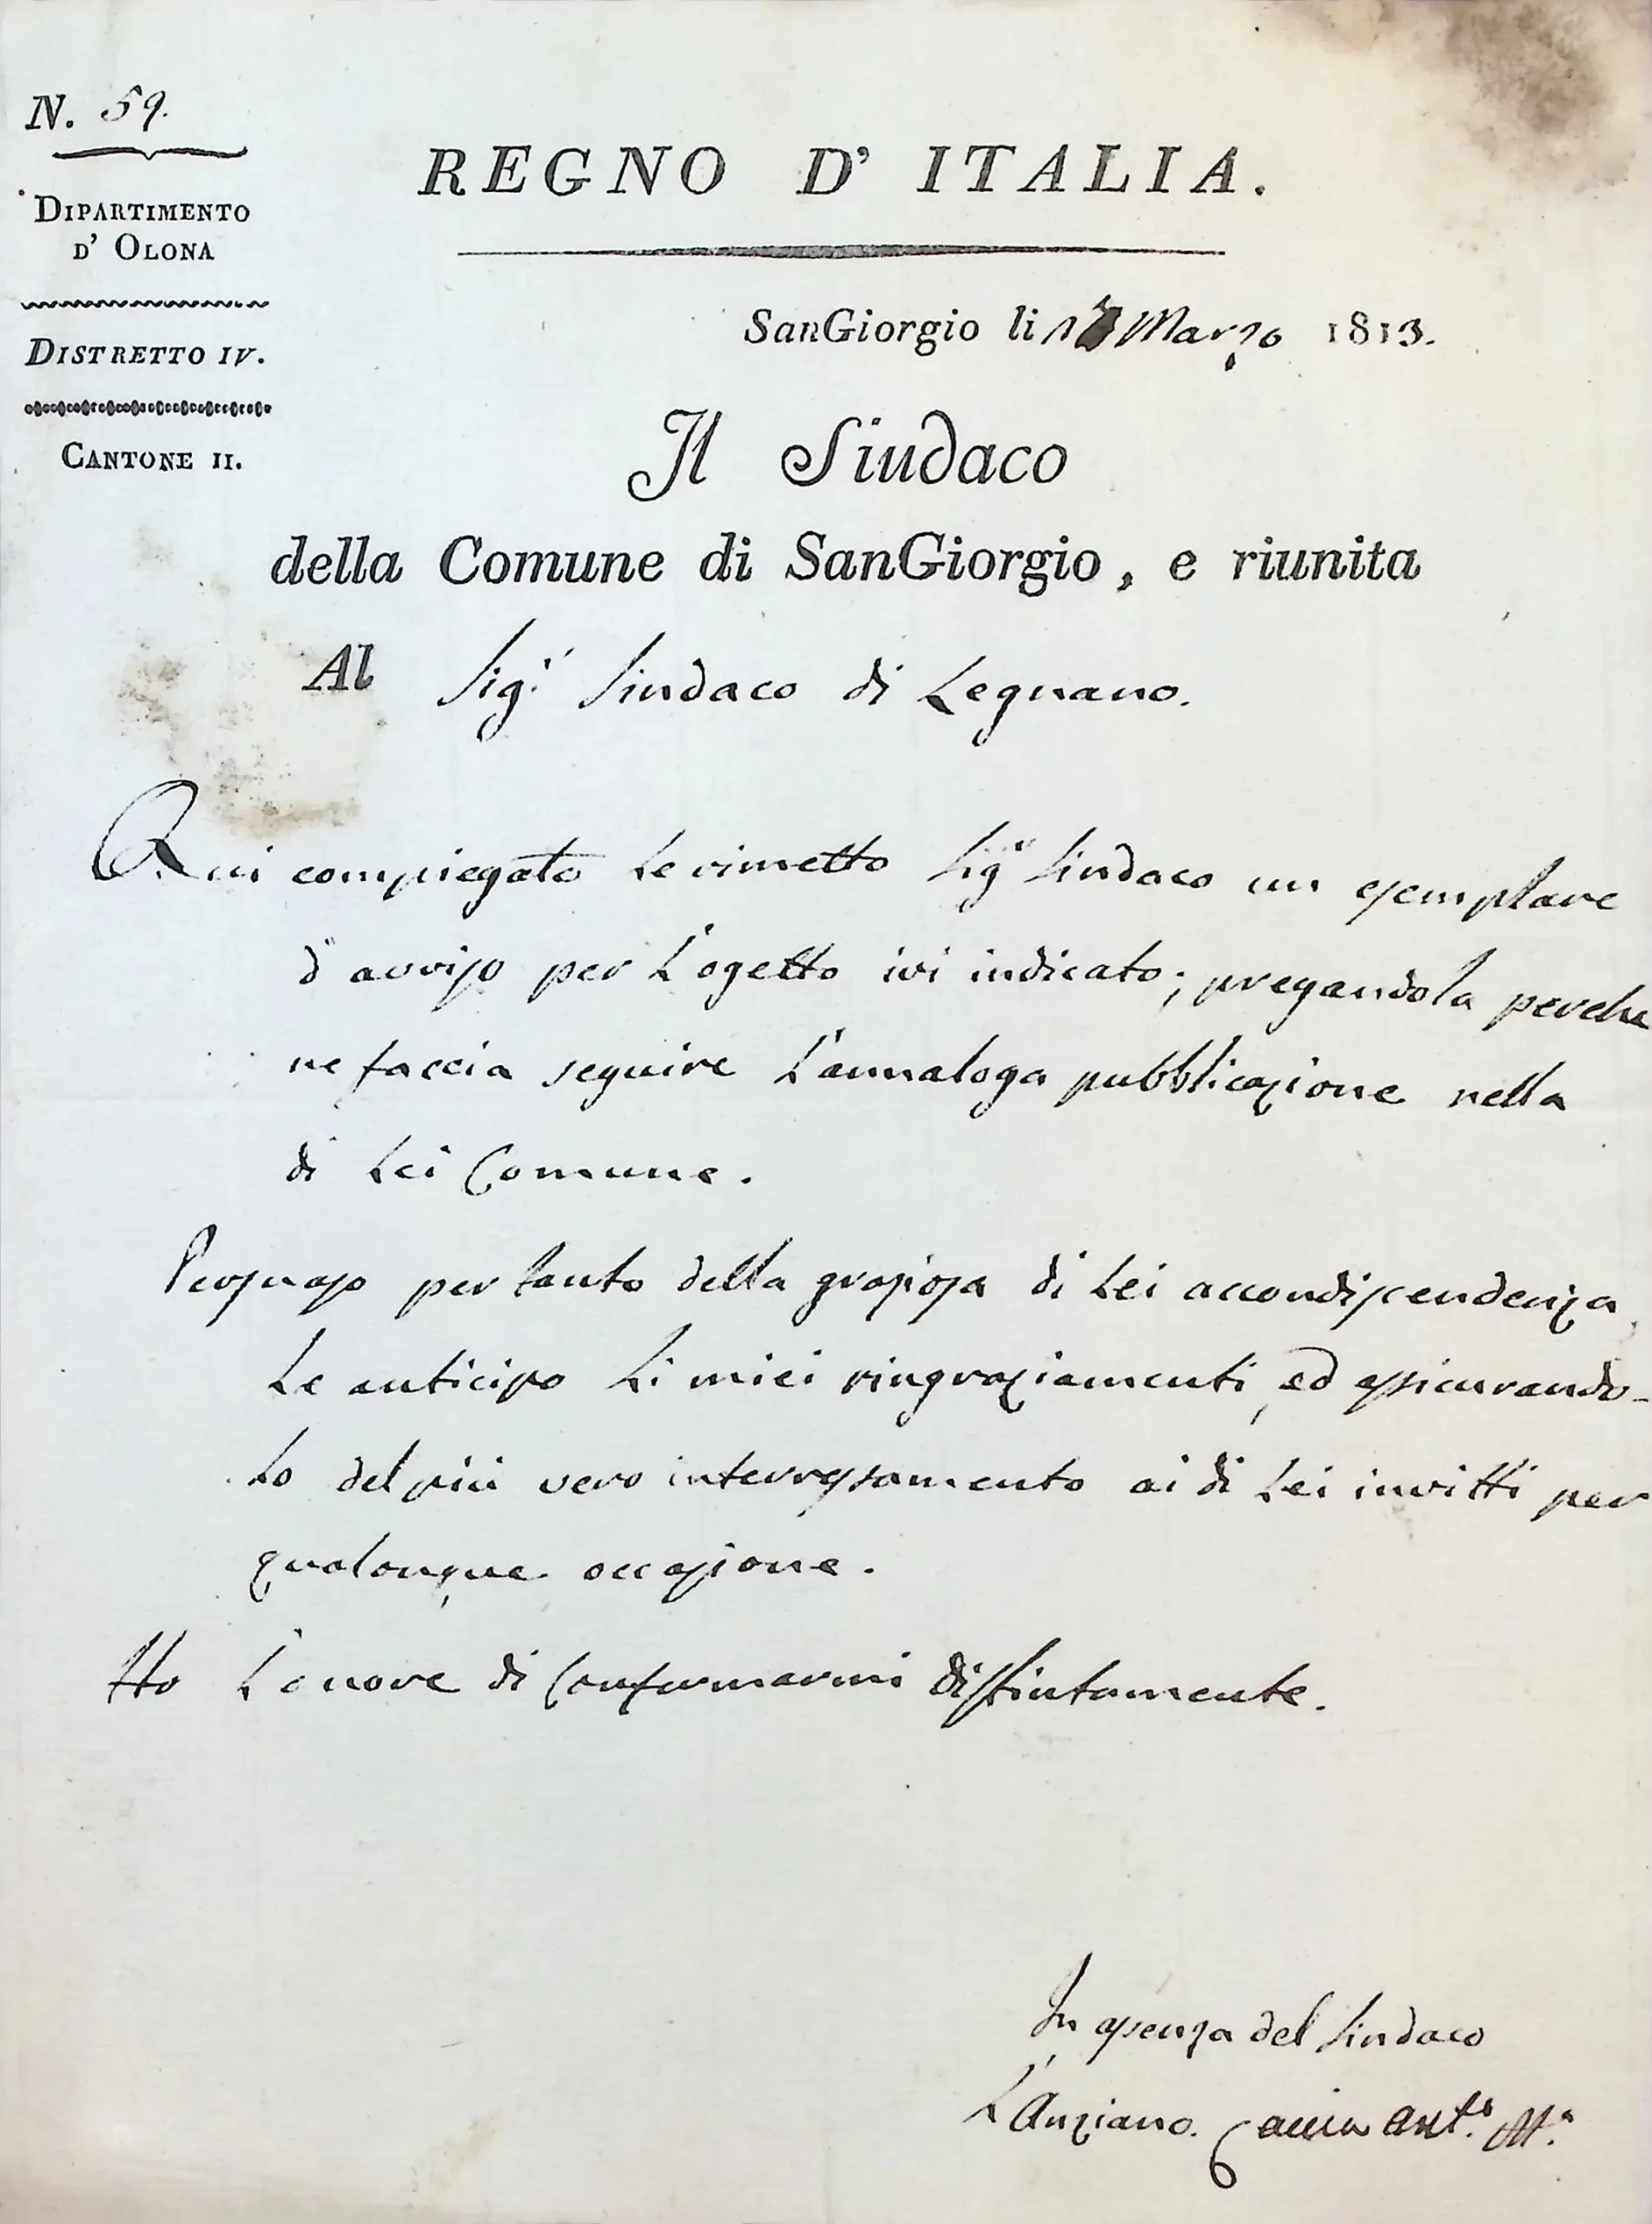 N. 59.
DIPARTIMENTO
D' OLONA
DISTRETTO IV.
CANTONE II.
REGNO D' ITALIA.
SanGiorgio li Marzo 1813.
Il Sindaco
della Comune di SanGiorgio, e riunita
Al Sigr. Sindaco di Legnano.
Qui compiegato Le rimetto Sigr Sindaco un esemplare
d'avviso per L'ogetto ivi indicato; pregandola perche
ne faccia seguire L'annaloga pubblicazione nella
di Lei Comune.
Persuaso per tanto della graziosa di Lei accondiscendenza,
Le anticipo Li miei ringraziamenti, ed assicurando-
Lo del più vero interressamento ai di Lei invitti per
qualonque occasione.
Ho L'onore di Confermarmi distintamente.
In assenza del Sindaco
L'Anziano. Anto. Ma.